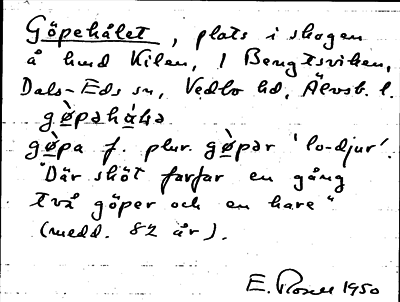 Göpehålet, plats i skogen
å hmd Kilen, 1 Bengtsviken,
Dals-Eds sn, Vedbo hd, Älvsb. l.
gø̀pahåła
gø̀pa f. plur. gø̀par 'lo-djur'.
"Där sköt farfar en gång
två göper och en hare"
(medd. 82 år).
E. Rosell 1950